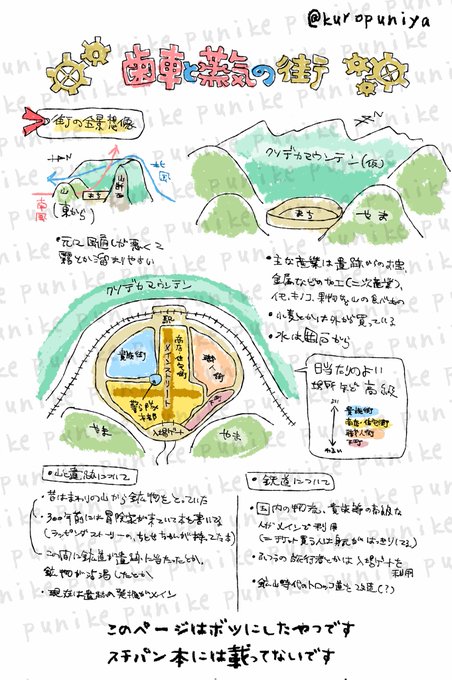 @kuropuniya
歯車と蒸気の街
街の全景想像
山
(東から)
まち
山脈
北風
南風
・元々風通しが悪くて
霧とか溜まりやすい
クソデカマウンテン(仮)
まち
やま
・主な産業は遺跡からのお宝、
金属などの加工(二次産業)、
イモ、キノコ、果物など山の食べもの
・小麦とかは外から買っている
・水は山から
クソデカマウンテン
駅
貴族街
商店・住宅街
メインストリート
職人街
下町
警備隊
本部
入場ゲート
やま
やま
日当たりのよい
場所ほど高級
よい
わるい
貴族街
商店・住宅街
職人街
下町
・山と遺跡について
・昔はまわりの山から鉱物をとっていた
・300年前には冒険家が来ていて本を書いてる
・この間に鉱道が遺跡に当たったとか、
鉱物が枯渇したとか
・現在は遺跡の発掘がメイン
・鉄道について
・国内の物流、貴族等の高級な
人がメインで利用
・ふつうの旅行者とかは入場ゲートを
利用
・鉱山時代のトロッコ道を改造(?)
このページはボツにしたやつです
スチパン本には載ってないです
punike